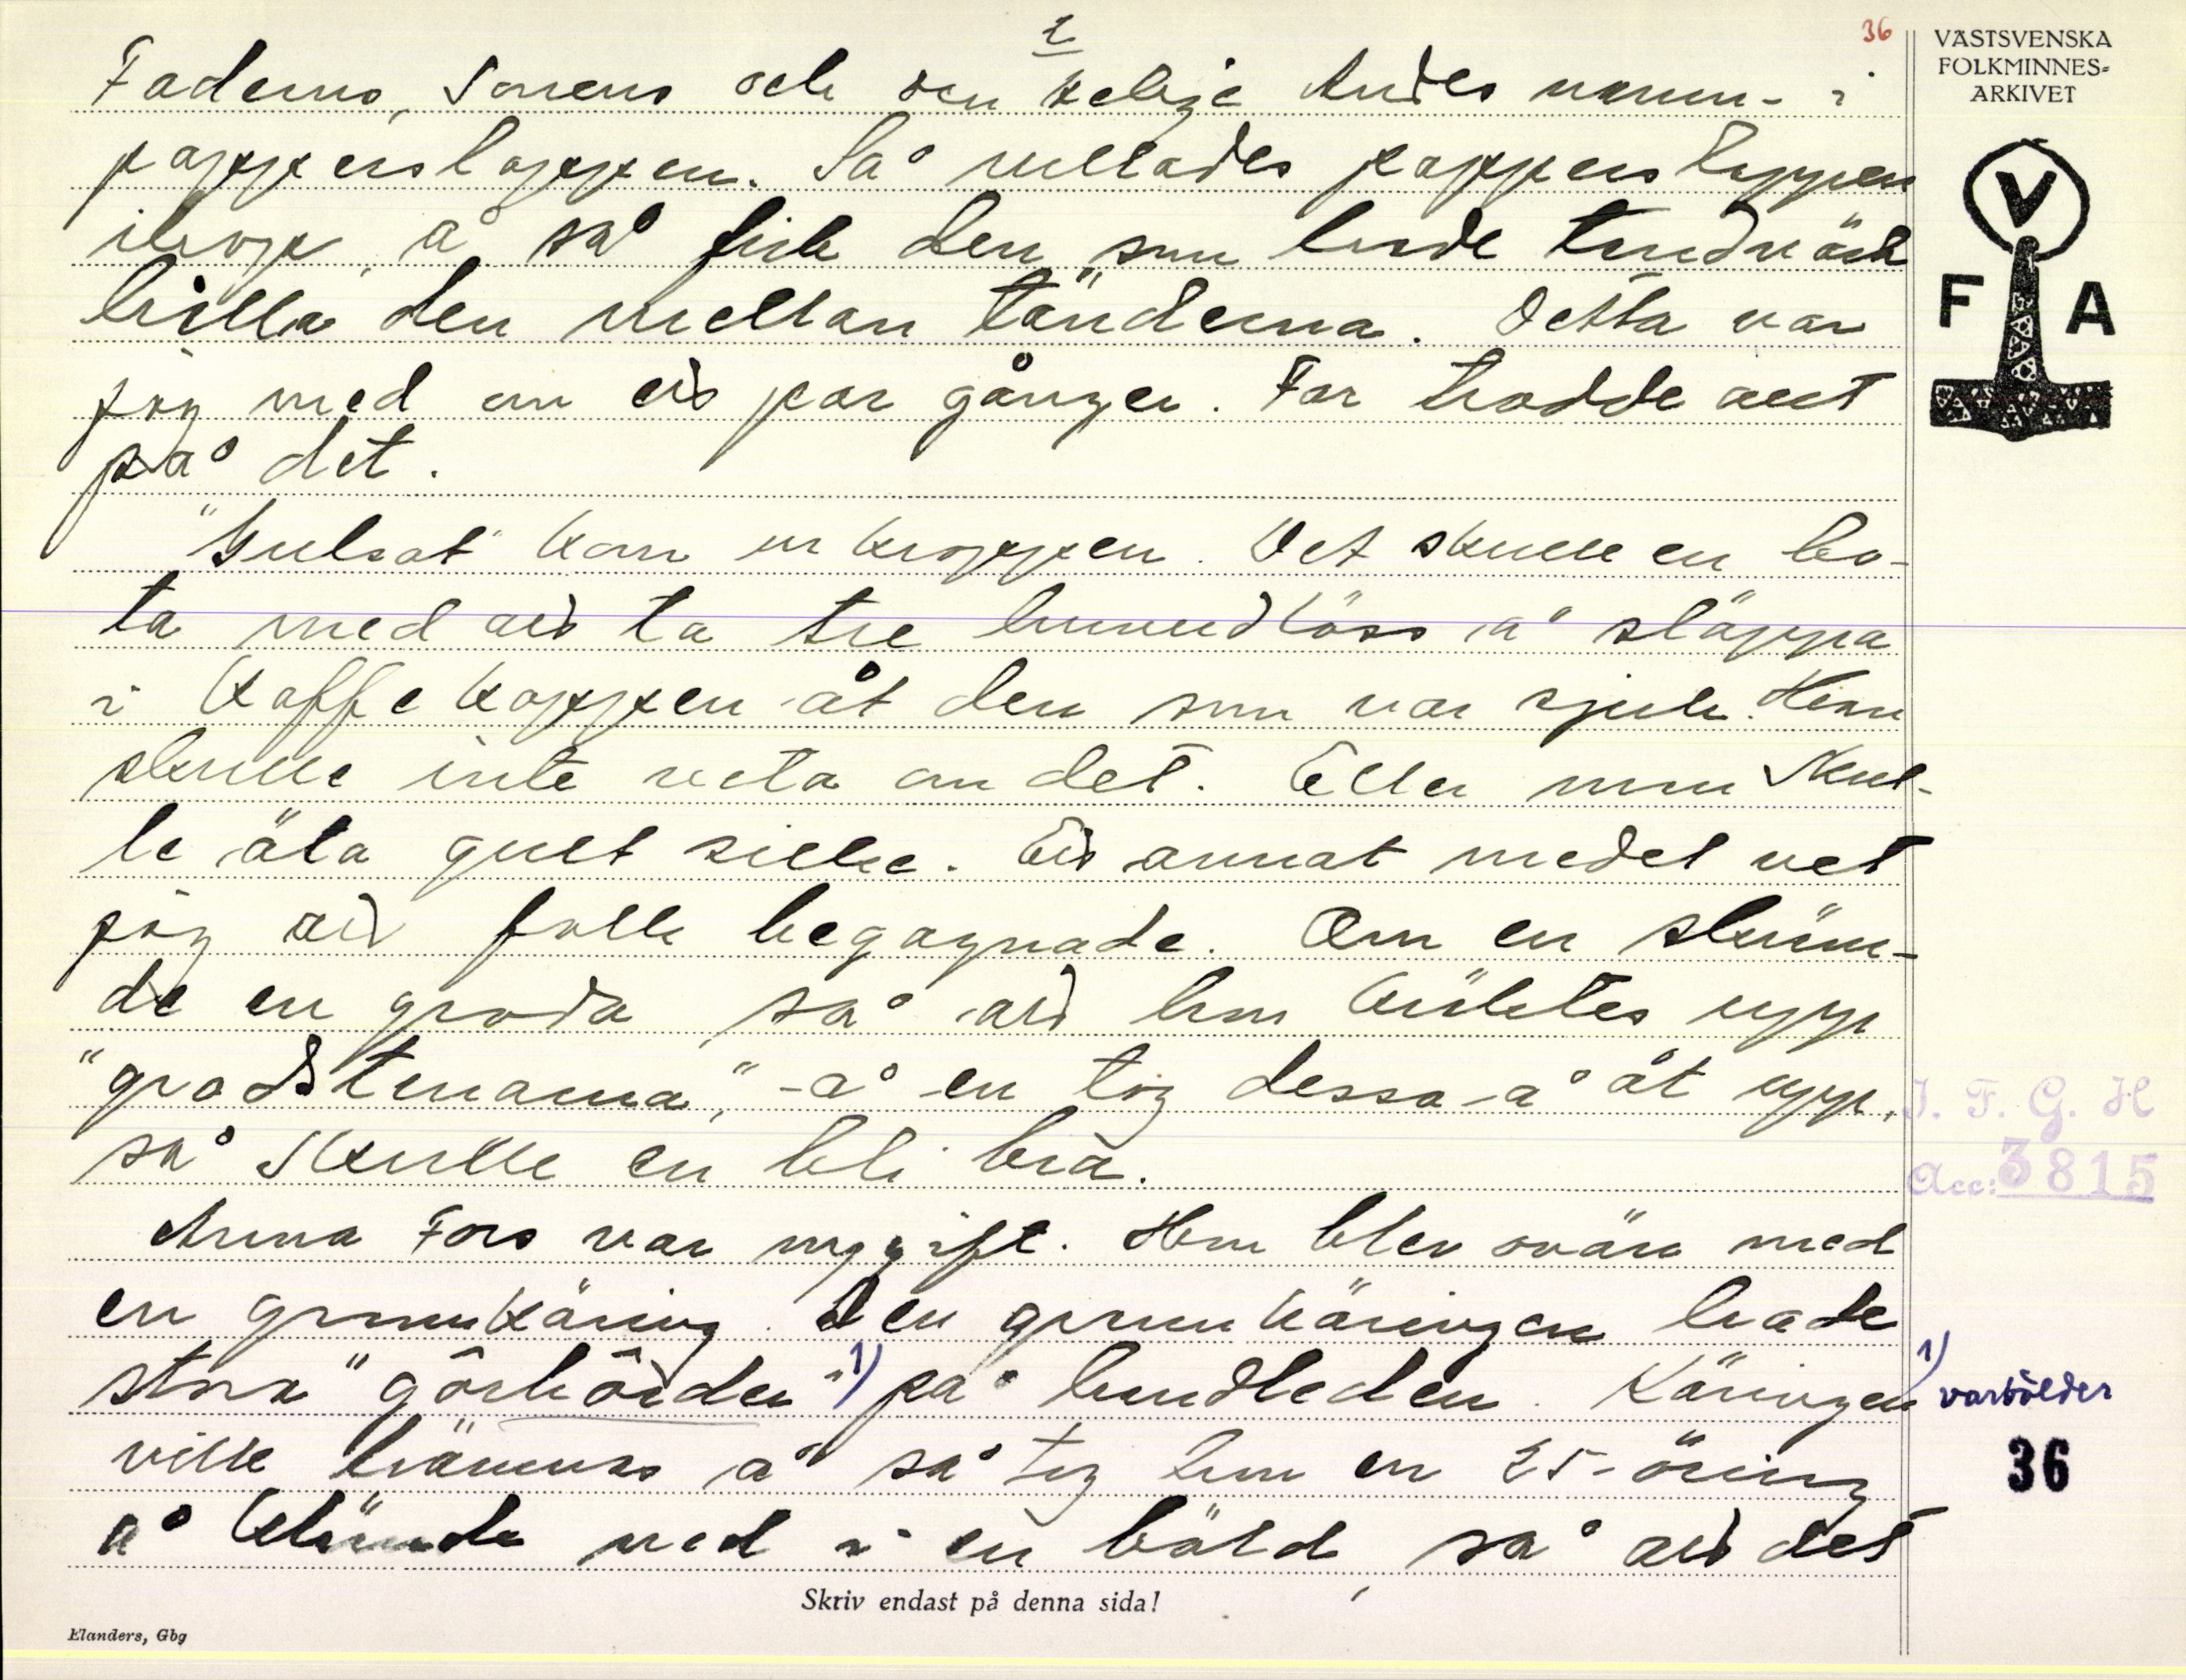 2
36
Faderns, Sonens och den Helige Andes namn - i
papperslappen. Så rullades papperslappen
ihop, å så fick den som hade tandvärk
hålla den mellan tänderna. Detta var
jög med om ett par gånger. Far trodde allt
på det.
"Gulsot" kom ur kroppen. Det skulle en bo-
ta med att ta tre huvudlöss å släppa
i kaffekoppen åt den som var sjuk. Henn
skulle inte veta om det. Eller um skul-
le äta gult silke. Ett annat medel vet
jög att folk begagnade. Om en skräm-
de en groda, så att hon kräktes upp
"grodstenarna," - å en tög dessa - å åt upp,
så skulle en bli bra.
Anna Fors var nygift. Hon blev ovän med
en grannkäring. Den grannkäringen hade
stora "görbölder" 1) på handleden. Käringen
ville hämnas å så tog hon en 25-öring
å klämde ned i en böld, så att det
Skriv endast på denna sida!
Elanders, Gbg
VÄSTSVENSKA
FOLKMINNES-
ARKIVET
V
F A
I. F. G. H
Acc: 3815
1)
varbölder
36